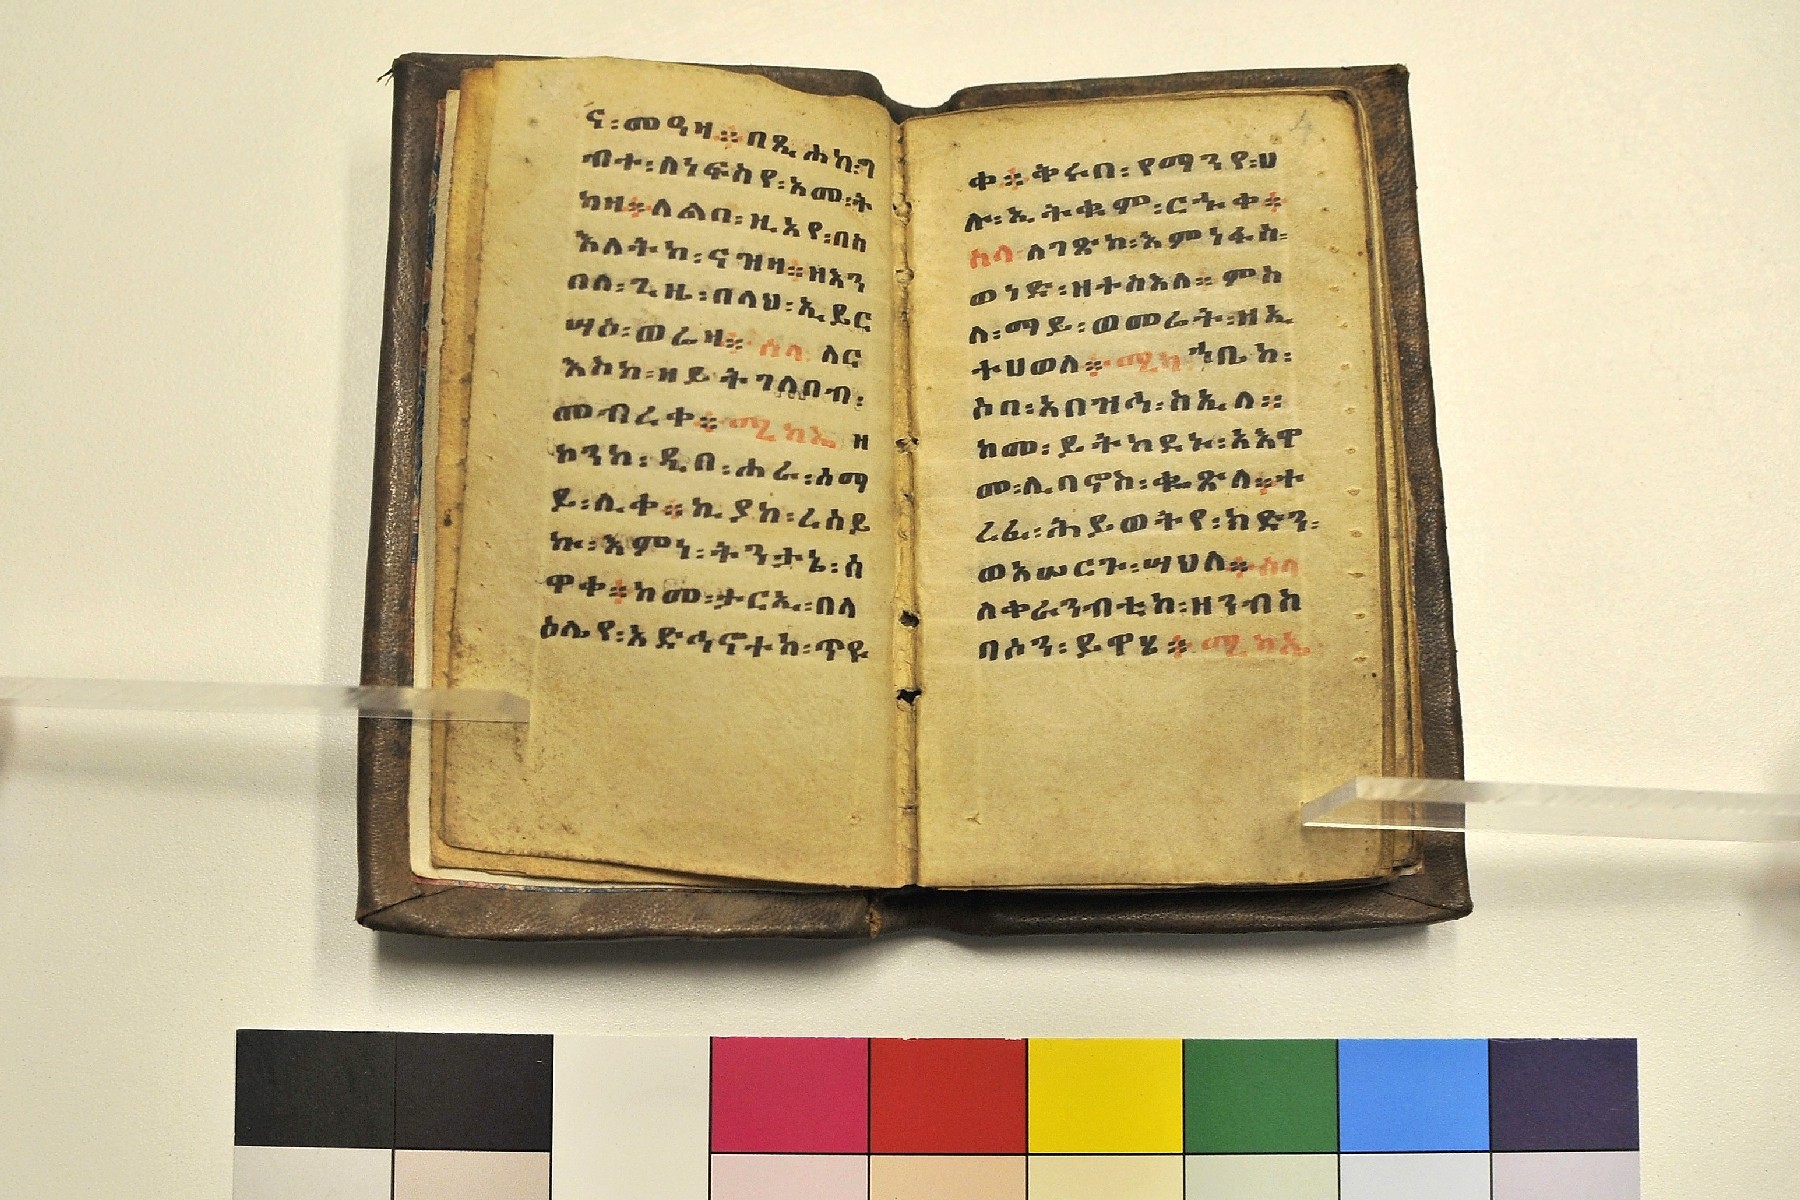 ና፡መዓዛ። በጺሐከ፡ግ
ብተ፡ለነፍስየ፡አመ፡ት
ከዘ። ለልብ፡ዚአየ፡በከ
እለትከ፡ናዝዛ። ዘእን
በለ፡ጊዜ፡በላህ፡ኢይር
ሣዕ፡ወሬዛ። ሰላ ለር
እስከ፡ዘይትገለበብ፡
መብረቀ። ሚካኤ ዘ
ኮንከ፡ዲበ፡ሐራ፡ሰማ
ይ፡ሊቀ። ኪያከ፡ረሰይ
ኩ፡እምነ፡ትንታኔ፡ሰ
ዋቀ። ከመ፡ታርኢ፡በላ
ዕሌየ፡አድኅኖተከ፡ጥዩ
4
ቀ። ቅሩበ፡የማንየ፡ሀ
ሉ፡ኢትቁም፡ርኁቀ።
ሰላ ለገጽከ፡እምነፋስ፡
ወነድ፡ዘተስእለ። ምስ
ለ፡ማይ፡ወመሬት፡ዘኢ
ተሀወለ። ሚካ ኀቤከ፡
ሶበ፡አበዝኅ፡ስኢለ።
ከመ፡ይትከደኑ፡አእዋ
መ፡ሊባኖስ፡ቈጽለ። ተ
ረፈ፡ሕይወትየ፡ክድን፡
ወአሠርጉ፡ሣህለ። ሰላ
ለቀራንብቲከ፡ዘንብስ
ባሶን፡ይዋሄ። ሚካኤ